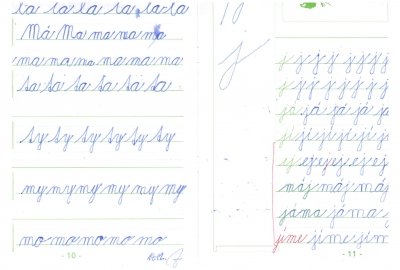 ta ta ta ta ta ta
Má Ma ma ma ma
ma ma ma ma ma ma
ta ta ta ta ta ta
ty ty ty ty ty ty
my my my my my my
mo mo mo mo mo
- 10 -
j
j j j j j j j
j j j j j j j
já já já já já
jí jí jí jí jí jí
ej ej ej ej ej ej
máj máj máj
jáma jáma
jíme jíme jím
- 11 -